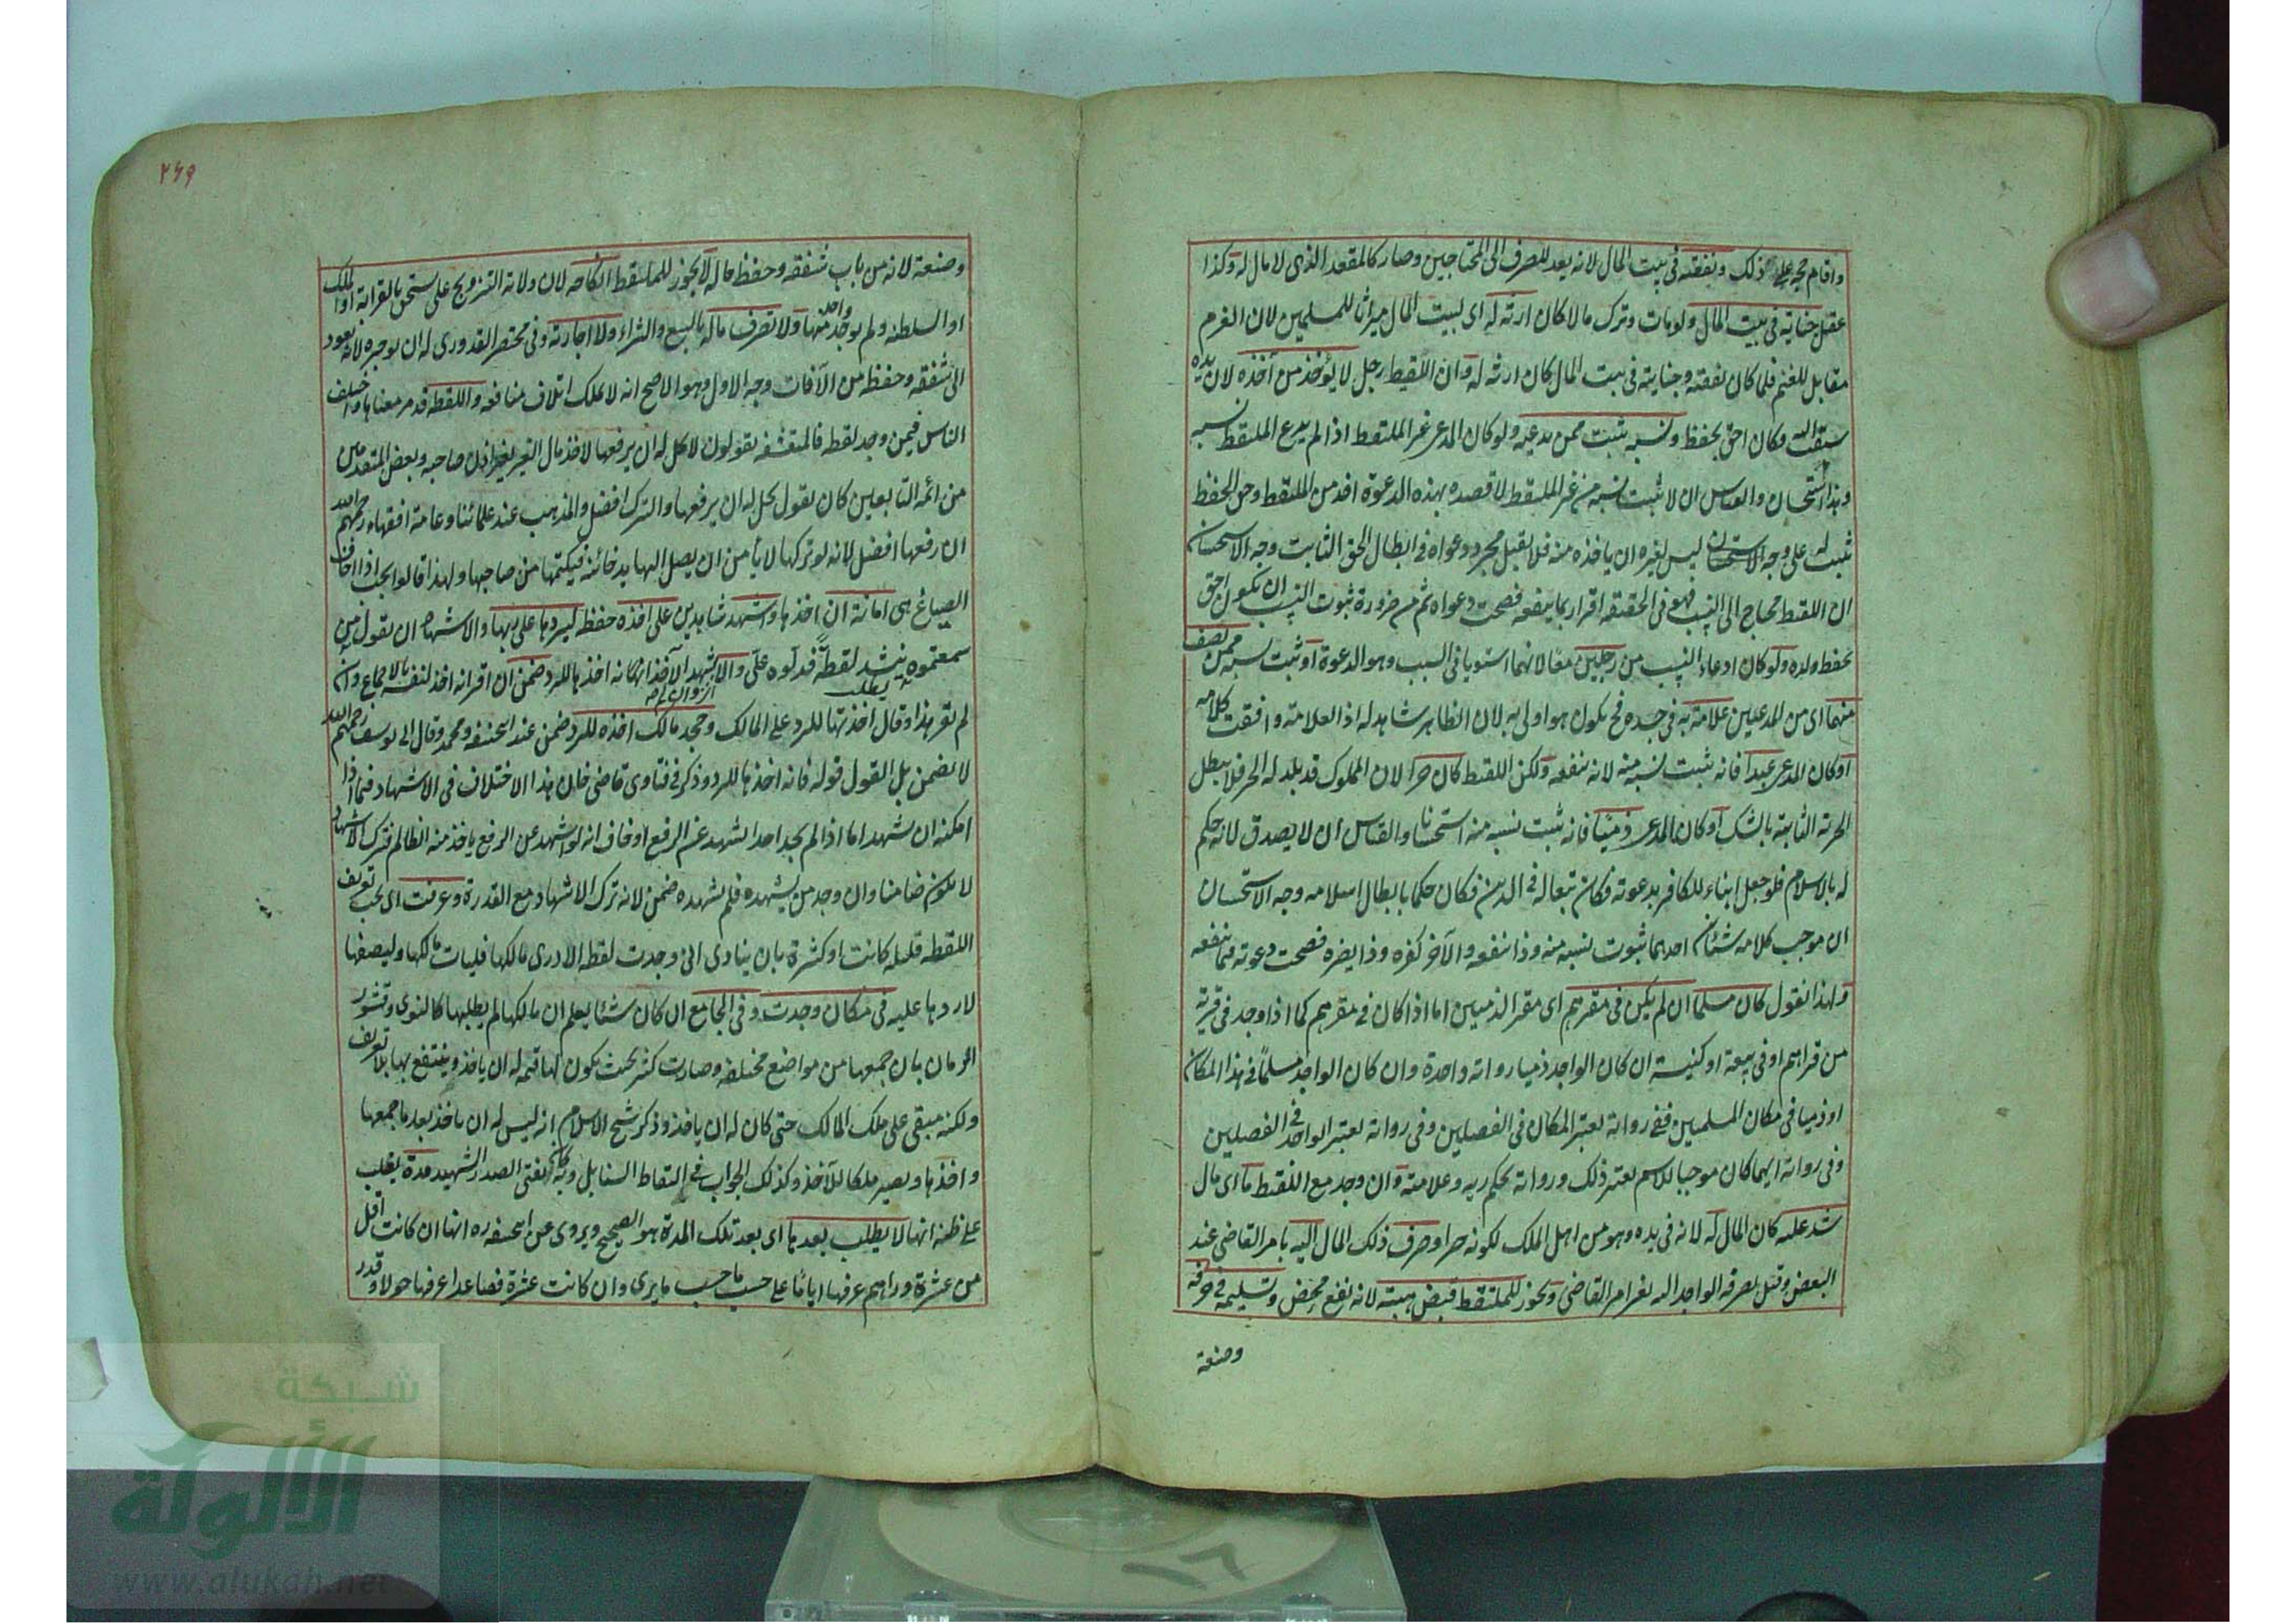 واقام حجة على ذلك ونفقته في بيت المال لانه يعد للصرف الى المحتاجين وصار كالمقعد الذي لا مال له وكذا
عقل جنايته في بيت المال ولو مات وترك مالا كان ارثه له اى لبيت المال ميراثا للمسلمين لان الغرم
مقابل للغنم فلما كان نفقته وجنايته في بيت المال كان ارثه له وان اللقيط رجل لا يؤخذ من آخذه لان يده
سبقت اليه فكان احق بحفظه ونسبه يثبت ممن يدعيه ولو كان المدعى غير الملتقط اذا لم يدع الملتقط نسبه
وهذا استحسان والقياس ان لا يثبت نسبه من غير الملتقط لا قصده بهذه الدعوة اخذ من الملتقط وحق الحفظ
ثبت له على وجه الاستحسان ليس لغيره ان ياخذه منه فلا يقبل مجرد دعواه في ابطال الحق الثابت وجه الاستحسان
ان اللقيط محتاج الى النسب فهو في الحقيقة اقرار بما ينفعه فصحت دعواه ثم من ضرورة ثبوت النسب ان يكون احق
بحفظ ولده ولو كان ادعاء النسب من رجلين معا لانهما استويا في السبب وهو الدعوة او ثبت نسبه ممن يصف
منهما اى من المدعيين علامة به في جسده فح يكون هو اولى به لان الظاهر شاهد له اذ العلامة وافقت كلامه
او كان المدعى عبدا فانه يثبت نسبه منه لانه ينفعه ولكن اللقيط كان حرا لان المملوك قد يلد له الحر فلا يبطل
الحرية الثابتة بالشك او كان المدعى ذميا فانه يثبت نسبه منه استحسانا والقياس ان لا يصدق لانه حكم
له بالاسلام فلو جعل ابناء للكافر بدعوته فكان تبعا له في الدين فكان حكما بابطال اسلامه وجه الاستحسان
ان موجب كلامه شيئان احدهما ثبوت نسبه منه وذا ينفعه والآخر كفره وذا يضره فصحت دعوته فيما ينفعه
ولهذا نقول كان مسلما ان لم يكن في مقرهم اى مقر الذميين اما اذا كان في مقرهم كما اذا وجد في قرية
من قراهم او في بيعة او كنيسة ان كان الواجد ذميا رواية واحدة وان كان الواجد مسلما في هذا المكان
او ذميا في مكان المسلمين ففي رواية يعتبر المكان في الفصلين وفي رواية يعتبر الواجد في الفصلين
وفي رواية ايهما كان موجبا للاسلام يعتبر ذلك ورواية يحكم زيه وعلامته وان وجد مع اللقيط ما اى مال
شد عليه كان المال له لانه في يده وهو من اهل الملك لكونه حرا وصرف ذلك المال اليه بامر القاضي عند
البعض وقيل يصرفه الواجد اليه بغير امر القاضي ويجوز للملتقط قبض هبته لانه نفع محض وتسليمه في حرفة
وصنعة
٢٦٩
وصنعة لانه من باب شفقه وحفظ ماله لا يجوز للملتقط انكاحه لان ولاية التزويج على يستحق بالقرابة او الملك
او السلطنة ولم يوجد واحد منها ولا تصرف ماله بالبيع والشراء ولا اجارته وفي مختصر القدورى له ان يوجره لانه يعود
الى شفقه وحفظه من الآفات وجه الاول وهو الاصح انه لا يملك اتلاف منافعه واللقطة قد مر معناها واختلف
الناس فيمن وجد لقطة فالمتقشفه يقولون لا يحل له ان يرفعها لاخذ مال الغير بغير اذن صاحبه وبعض المتقدمين
من ائمة التابعين كان يقول يحل له ان يرفعها والترك افضل والمذهب عند علمائنا وعامة الفقهاء رحمهم الله
ان رفعها افضل لانه لو تركها لا يأمن ان يصل اليها يد خائنة فيكتمها من صاحبها ولهذا قالوا يجب اذا خاف
الضياع هى امانة ان اخذها واشهد شاهدين على اخذه حفظ ليردها على ربها والاشهاد ان يقول من
سمعتموه ينشد لقطة فدلوه على والا يشهد الآخذ انه اخذها للرد ضمن ان اقر انه اخذ لنفسه بالاجماع وان
لم يقر بهذا وقال اخذتها للرد على المالك وجحد مالك اخذه للرد ضمن عند ابى حنيفه ومحمد وقال ابى يوسف رحمهم الله
لا يضمن بل القول قوله فانه اخذها للرد وذكر في فتاوى قاضى خان هذا الاختلاف في الاشهاد فيما اذا
امكنه ان يشهد اما اذا لم يجد احدا يشهد عند الرفع او خاف انه لو اشهد عن الرفع ياخذ منه الظالم فترك الاشهاد
لا يكون ضامنا وان وجد من يشهده فلم يشهده ضمن لانه ترك الاشهاد مع القدرة وعرفت اى يجب تعريف
اللقطة قليلة كانت او كثيرة بان ينادى انى وجدت لقطة لا ادرى مالكها فليات مالكها وليصفها
لاردها عليه في مكان وجدت وفي الجامع ان كان شيئا يعلم ان مالكها لم يطلبها كالنوى وقشور
الرمان بان جمعها من مواضع مختلفة وصارت كثير بحيث يكون لها قيمة له ان ياخذ وينتفع بها بلا تعريف
ولكنه مبقى على ملك المالك حتى كان له ان ياخذ وذكر شيخ الاسلام انه ليس له ان ياخذ بعد ما جمعها
واخذها ويصير ملكا للآخذ وكذلك الجواب في التقاط السنابل وبه كان يفتى الصدر الشهيد مدة يغلب
على ظنه انها لا يطلب بعدها اى بعد تلك المدة هو الصحيح ويروى عن ابى حنيفه ره انها ان كانت اقل
من عشرة دراهم عرفها اياما على حسب ما يرى وان كانت عشرة فصاعدا عرفها حولا وقدر
شبكة
الألوكة
www.alukah.net